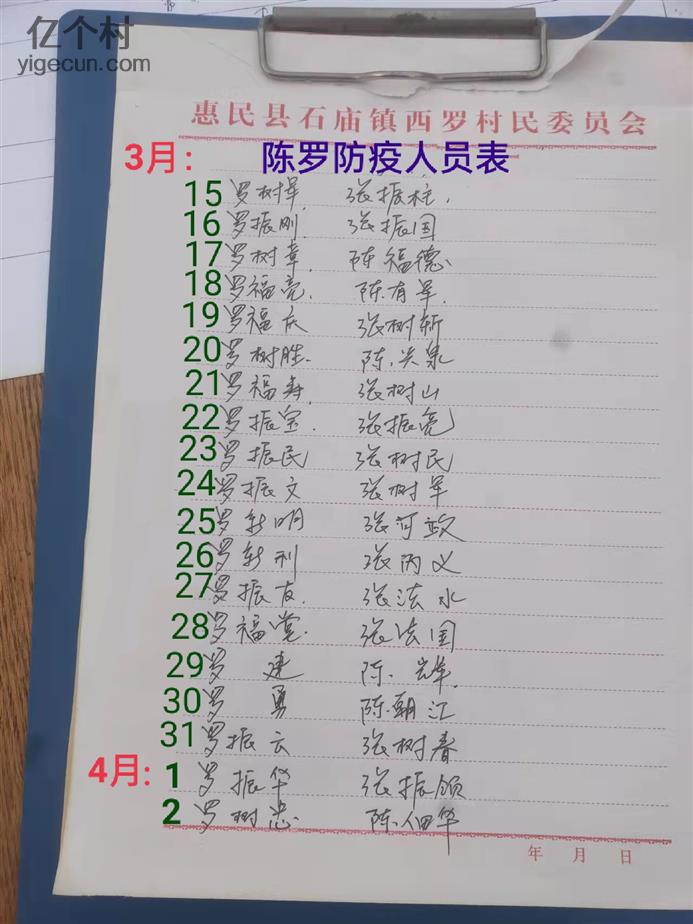 亿个村
yigecun.com
惠民县石庙镇西罗村民委员会
3月: 陈罗防疫人员表
15 罗树军 张振柱.
16 罗振刚 张振国
17 罗树章 陈福德
18 罗福亮 陈有军
19 罗福庆 张树新
20 罗树胜 陈兴泉
21 罗福寿 张树山
22 罗振宝 张振亮
23 罗振民 张树民
24 罗振文 张树军
25 罗新明 张河政
26 罗新利 张丙义
27 罗振友 张法水
28 罗福党 张法国
29 罗建 陈
30 罗勇 陈朝江
31 罗振云 张树春
4月: 1 罗振华 张振领
2 罗树忠 陈佃华
年 月 日